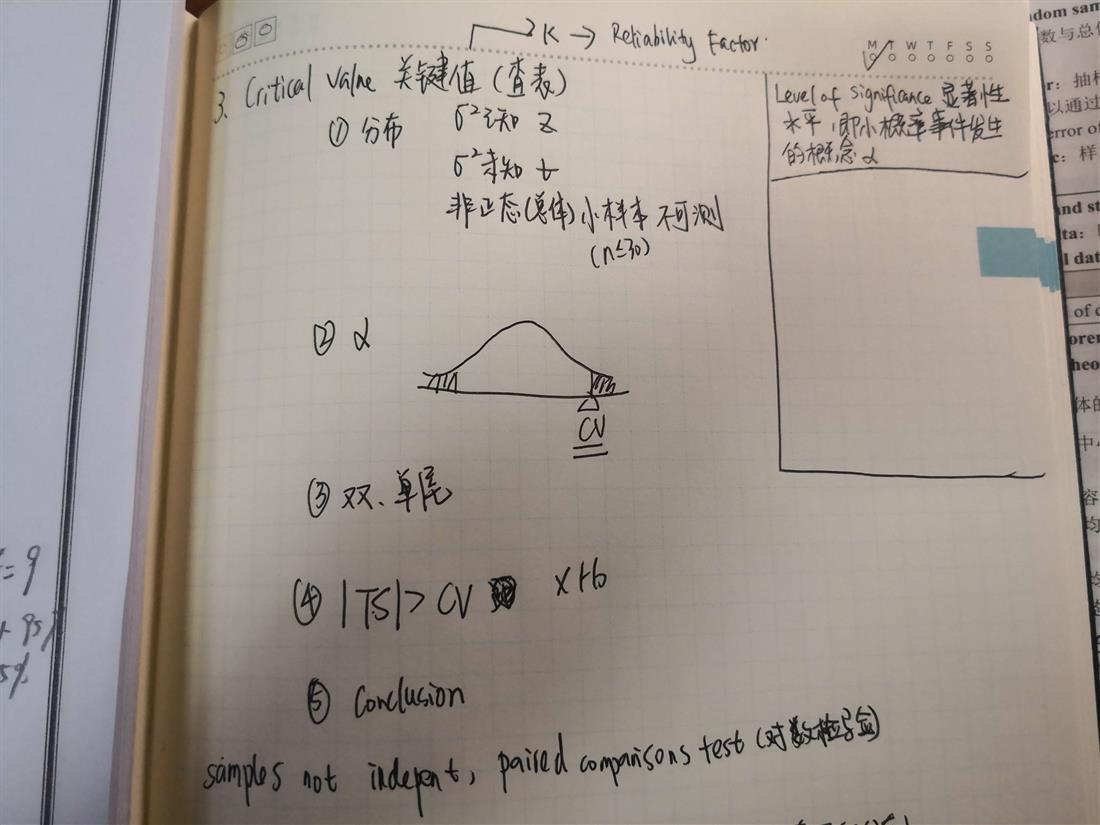 K → Reliability Factor.
M T W T F S S
3. Critical value 关键值 (查表)
① 分布 σ²已知 z
σ²未知 t
非正态(总体) 小样本 不可测
(n≤30)
Level of significance 显著性
水平,即小概率事件发生
的概念 α
② α
CV
③ 双、单尾
④ |TS| > CV × H₀
⑤ Conclusion
samples not indepent, paired comparisons test (对数检验)
= 9
95%
5%
dom sam
数与总体
r: 抽样
以通过
error of
c: 样
and st
ta:
l dat
of c
orem
heo
体的
中心
容
均